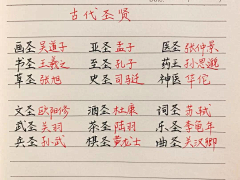 古代圣贤
画圣吴道子 亚圣孟子 医圣张仲景
书圣王羲之 至圣孔子 药王孙思邈
草圣张旭 史圣司马迁 神医华佗
文圣欧阳修 酒圣杜康 词圣苏轼
武圣关羽 茶圣陆羽 乐圣李龟年
兵圣孙武 棋圣黄龙士 曲圣关汉卿